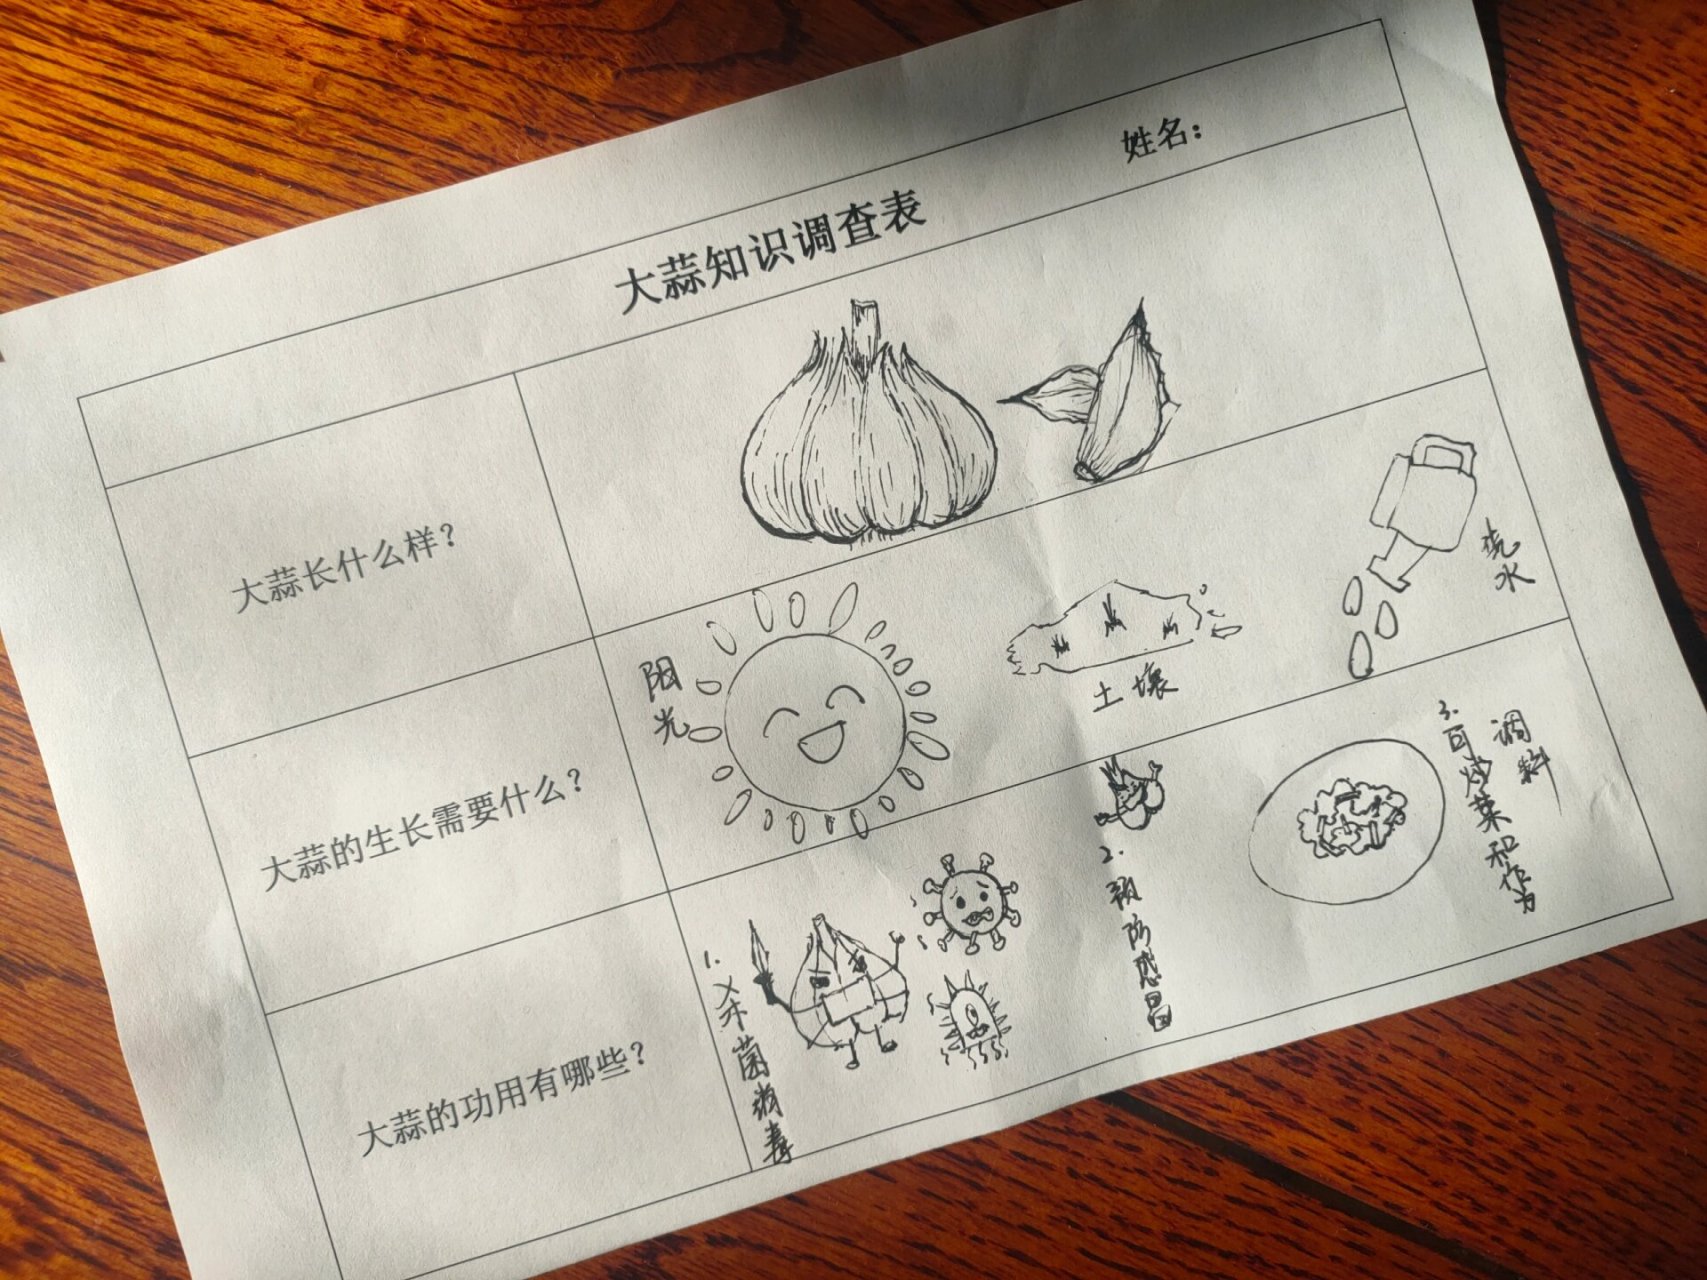 姓名：
大蒜知识调查表
大蒜长什么样？
大蒜的生长需要什么？
阳光
土壤
浇水
大蒜的功用有哪些？
1.杀菌消毒
2.预防感冒
3.可炒菜和作为
调料